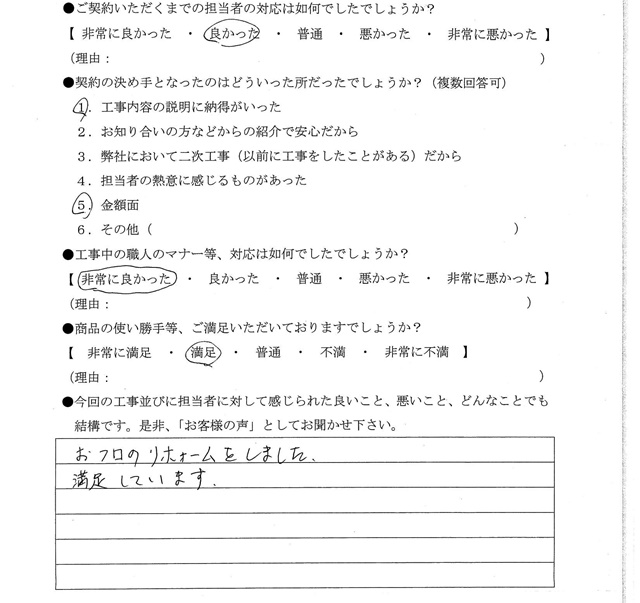 ●ご契約いただくまでの担当者の対応は如何でしたでしょうか？
【 非常に良かった ・ 良かった ・ 普通 ・ 悪かった ・ 非常に悪かった 】
（理由： ）
●契約の決め手となったのはどういった所だったでしょうか？（複数回答可）
１．工事内容の説明に納得がいった
２．お知り合いの方などからの紹介で安心だから
３．弊社において二次工事（以前に工事をしたことがある）だから
４．担当者の熱意に感じるものがあった
５．金額面
６．その他（ ）
●工事中の職人のマナー等、対応は如何でしたでしょうか？
【 非常に良かった ・ 良かった ・ 普通 ・ 悪かった ・ 非常に悪かった 】
（理由： ）
●商品の使い勝手等、ご満足いただいておりますでしょうか？
【 非常に満足 ・ 満足 ・ 普通 ・ 不満 ・ 非常に不満 】
（理由： ）
●今回の工事並びに担当者に対して感じられた良いこと、悪いこと、どんなことでも
結構です。是非、「お客様の声」としてお聞かせ下さい。
おフロのリホームをしました、
満足しています.